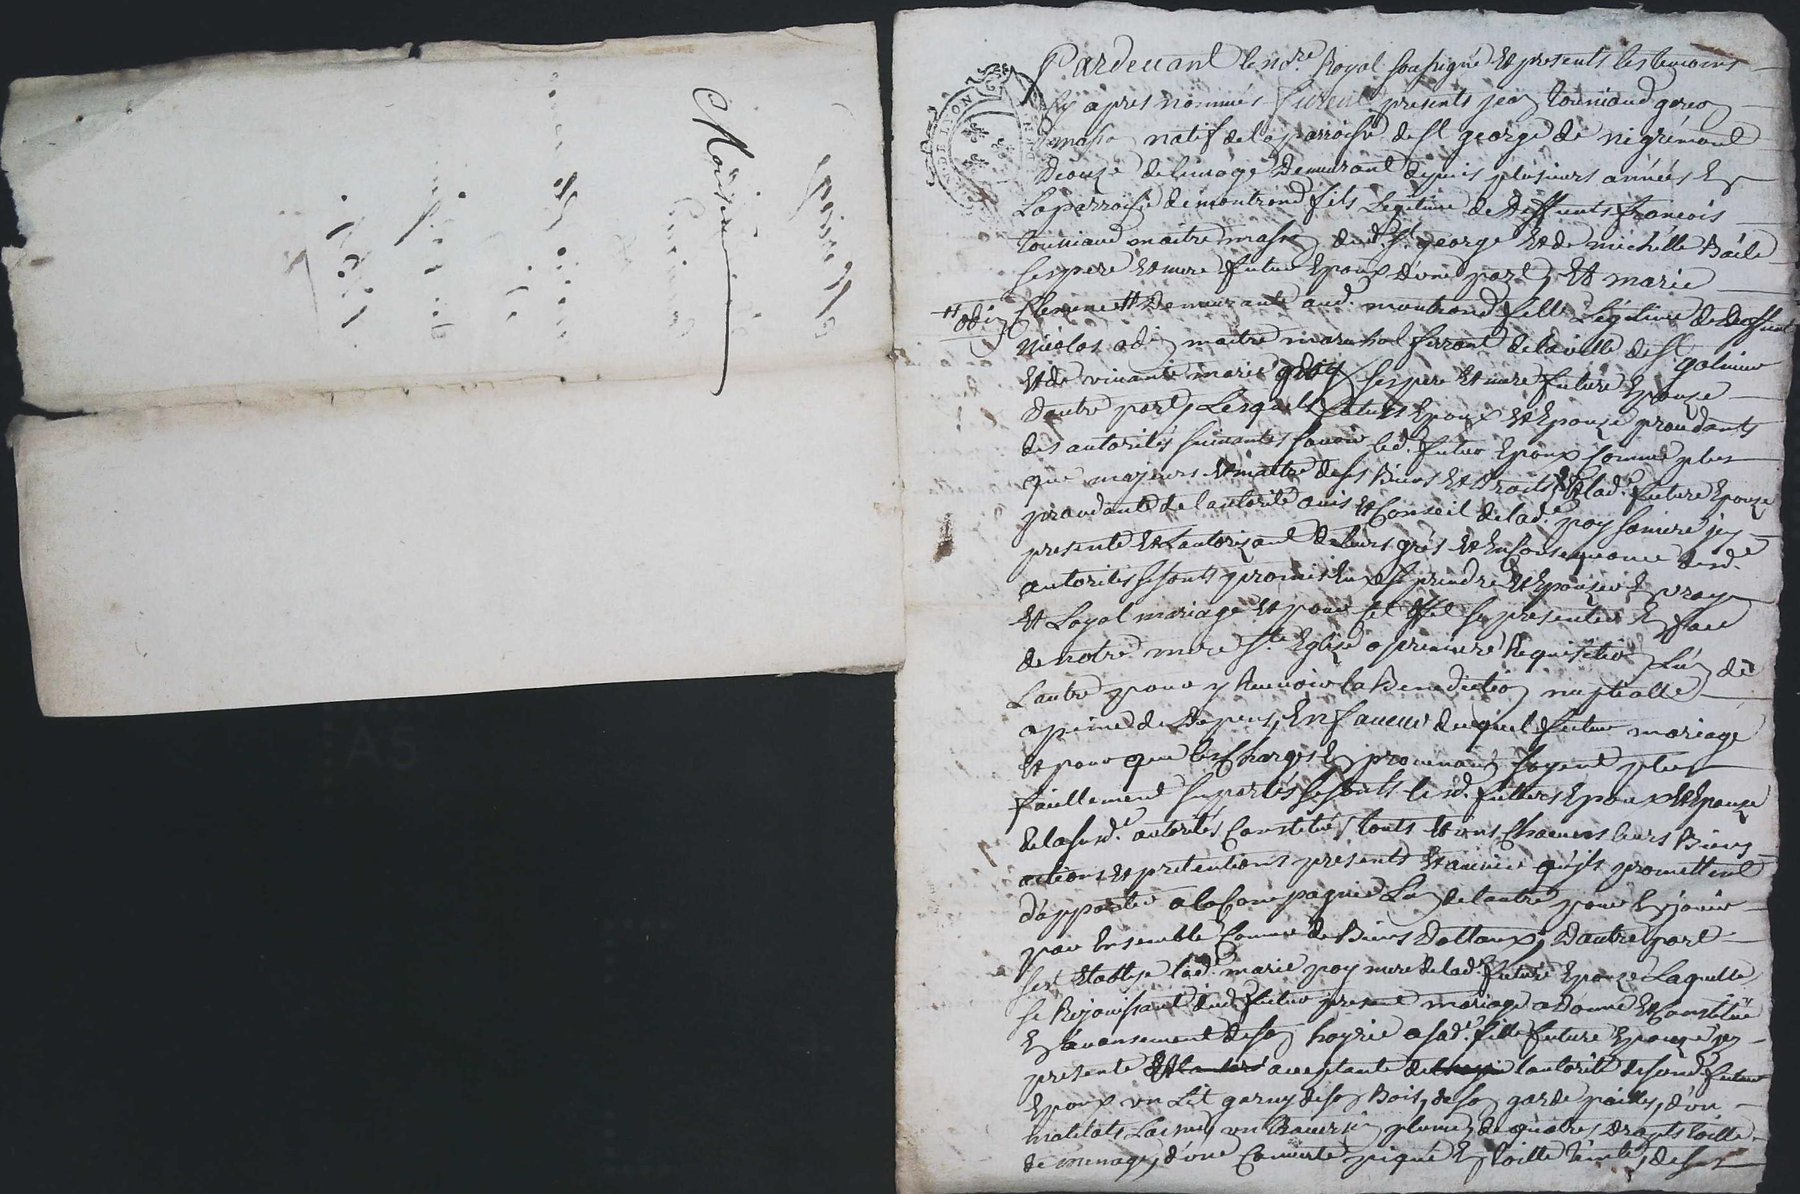 Pardevant le no.re Royal soussigné et presents les temoins
cy apres nommés furent presents jean touniaud garçon
masson natif de la parroisse de st george de nigrémond
dioceze de limoge demeurant depuis plusieurs années en
La parroisse de montrond fils Legitime de deffunts francois
touniaud maitre masson dud. st george et de michelle Baile
ses pere et mere futur Epoux d'une part, Et marie
Clemence # demeurante aud. montrond fille Légitime de deffunt
# odin
Nicolas odin maitre marechal ferrant de la ville de st galmier
Et de vivante marie poy ses pere et mere future Epouze
d'autre part, Lesquels futurs Epoux et Epouze procedants
des autorités suivantes savoir led. futur Epoux comme plus
que majeurs et maitre de ses Biens et droits et lad.e future Epouze
procedante de l'autorité avis et Conseil de lad.e poy sa mere icy
presente et l'autorizant de leurs grés et En Consequance desd.
autorités se sont promis Eux se prendre et Epouzer En vray
Et Loyal mariage et pour cet effet se presenter En face
de notre mere ste Eglise a premiere Requisition L'un de
L'autre pour y Recevoir la Benediction nuptialle
a peine de depens, En faveur duquel futur mariage
Et pour que les charges En provenant soyent plus
facillement suportés se sont lesd. futurs Epoux et Epouze
de la susd.e autorités Constitués touts et uns Chacuns leurs Biens
actions et pretentions presents et avenir qu'ils promettent
d'apporter a la Compagnie L'un de l'autre pour En jouir
par Ensemble Comme de Biens dottaux, d'autre part
s'est Etablye lad.e marie poy mere de lad.e future Epouze Laquelle
se Rejouissant dud. futur present mariage a donné et Constitué
En avansement de son hoyrie a sad.e fille future Epouze icy
presente acceptante de l'autorité de sond. futur
Epoux un Lit garny de son Bois, de son garde paille, d'un
matelats Laine, un traversin plume, de quatres draps toille
de menage, d'une Couverte piqué En toille teinte, de son
Monsieur